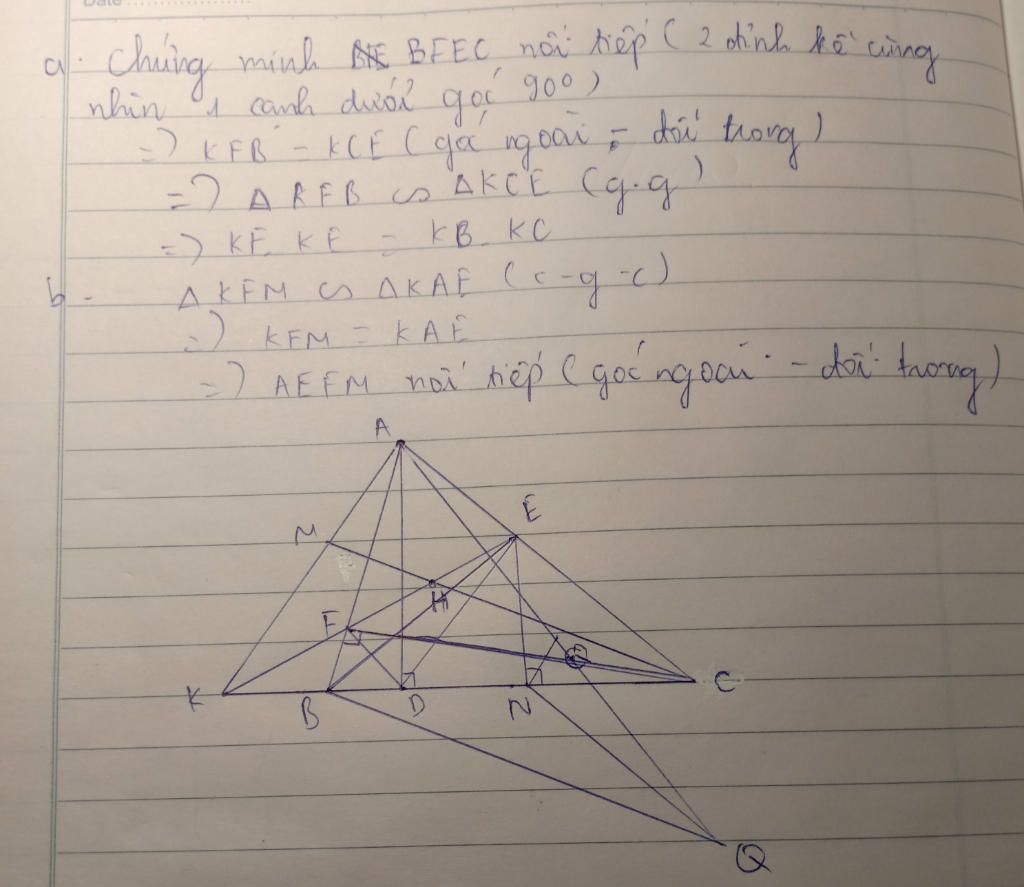 Date
a. Chứng minh BFEC nội tiếp ( 2 đỉnh kề cùng
nhìn 1 cạnh dưới góc 90°)
=> KFB = KCE ( góc ngoài = đối trong )
=> Δ KFB ∽ ΔKCE (g.g)
=> KF. KE = KB. KC
b. Δ KFM ∽ ΔKAE ( c-g-c)
=> KFM = KAE
=> AEFM nội tiếp ( góc ngoài - đối trong )
A
E
M
H
F
K
B
D
N
C
Q